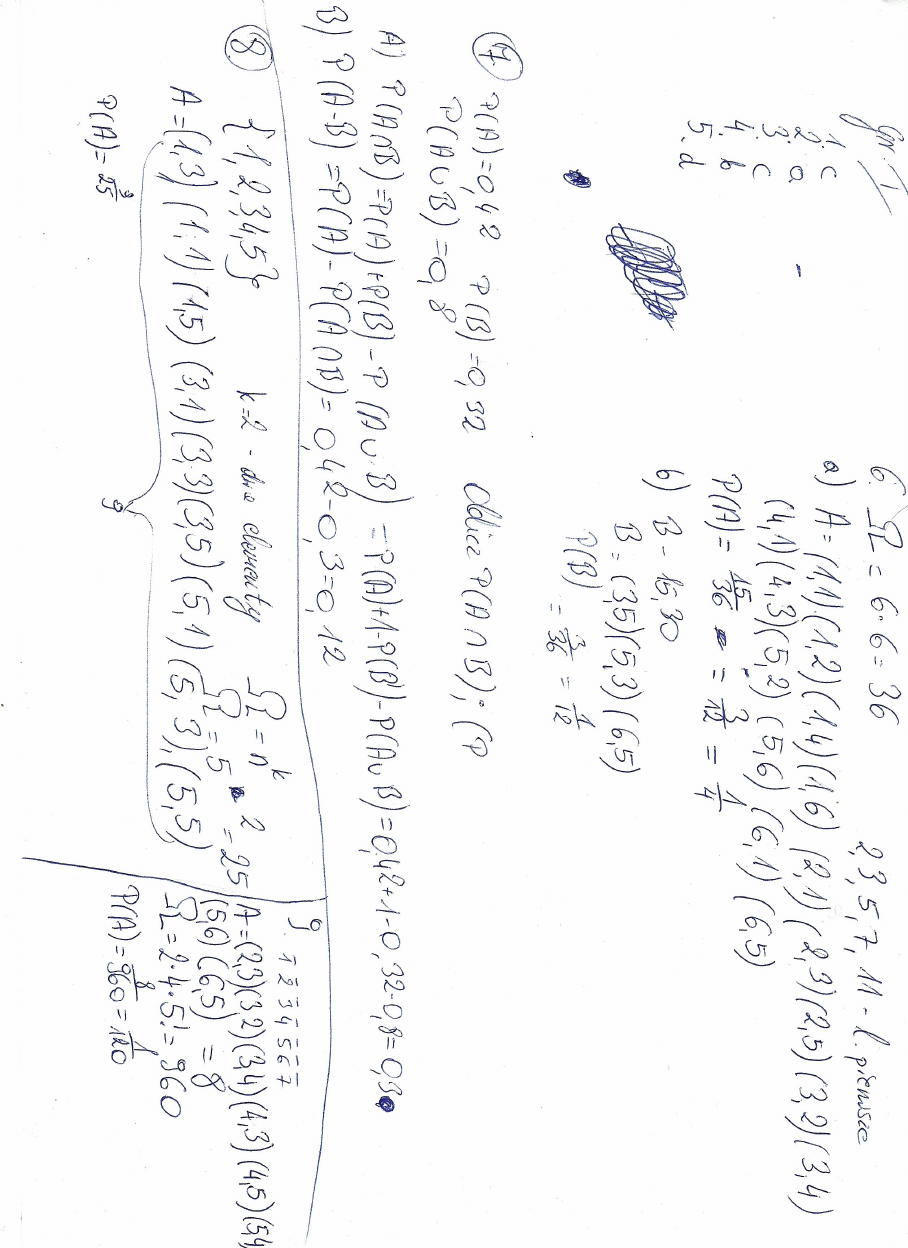 Gr. I
1. c
2. a
3. c
4. b
5. d
6. Ω = 6·6=36
2,3,5,7,11 - l. pierwsze
a) A = (1,1)(1,2)(1,4)(1,6)(2,1)(2,3)(2,5)(3,2)(3,4)
(4,1)(4,3)(5,2)(5,6)(6,1)(6,5)
P(A) = 15/36 = 3/12 = 1/4
b) B - 15,30
B = (3,5)(5,3)(6,5)
P(B) = 3/36 = 1/12
7 P(A)=0,42 P(B')=0,32 Oblicz P(A∩B); (P
P(A∪B)=0,8
A) P(A∩B)=P(A)+P(B)-P(A∪B) = P(A)+1-P(B')-P(A∪B)=0,42+1-0,32-0,8=0,3
B) P(A-B)=P(A)-P(A∩B)=0,42-0,3=0,12
8 {1,2,3,4,5} k=2 - dwa elementy Ω = n^k
Ω = 5^2 = 25
A = (1,3)(1,1)(1,5)(3,1)(3,3)(3,5)(5,1)(5,3),(5,5)
9
P(A)= 9/25
9. 1 2 3 4 5 6 7
A=(2,3)(3,2)(3,4)(4,3)(4,5)(5,4)
(5,6)(6,5) = 8
Ω = 2·4·5! = 960
P(A) = 8/960 = 1/120